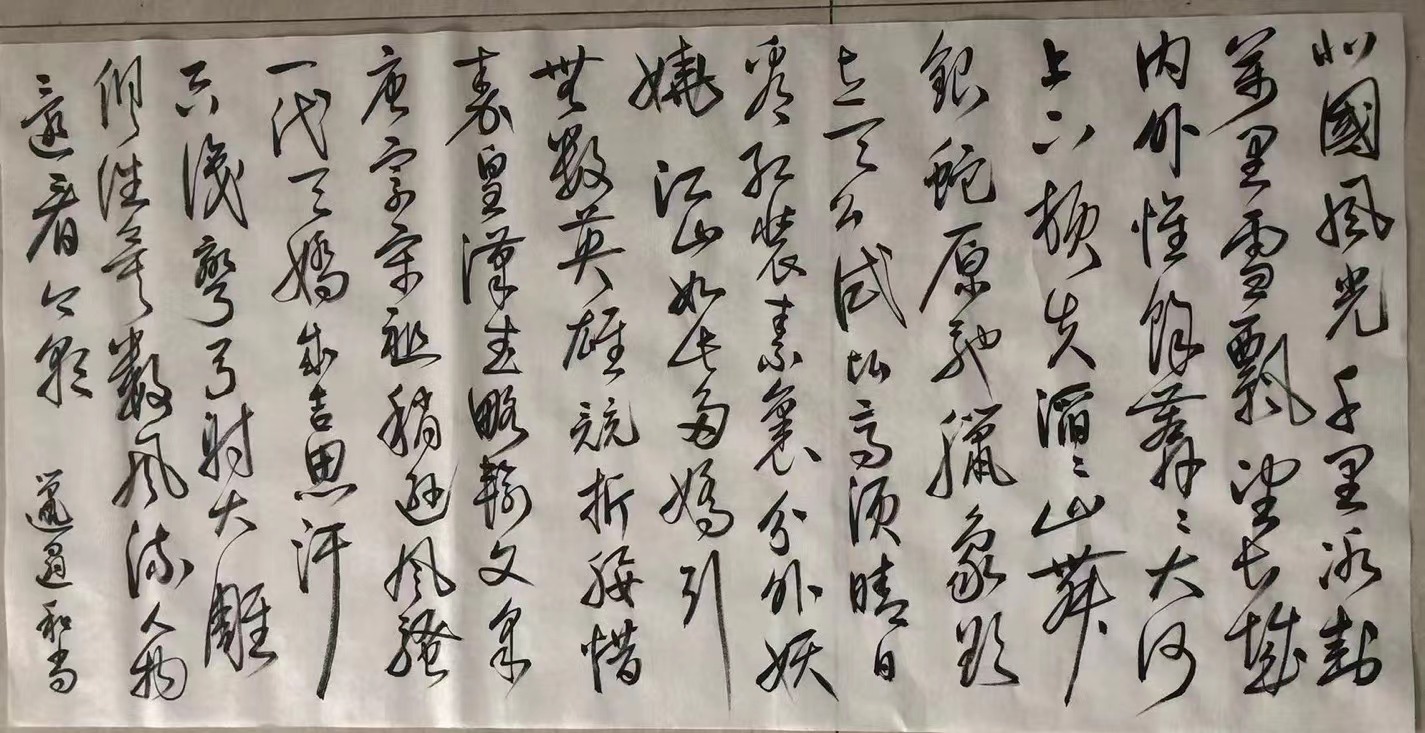 北國風光千里冰封
萬里雪飄望長城
内外惟餘莽〻大河
上下頓失滔〻山舞
銀蛇原馳臘象欲
与天公試比高須晴日
看紅裝素裹分外妖
嬈 江山如此多嬌引
無數英雄競折腰惜
秦皇漢武略輸文采
唐宗宋祖稍遜风騷
一代天嬌成吉思汗
只識彎弓射大雕
俱往矣數风流人物
還看今朝 邋遢和尚